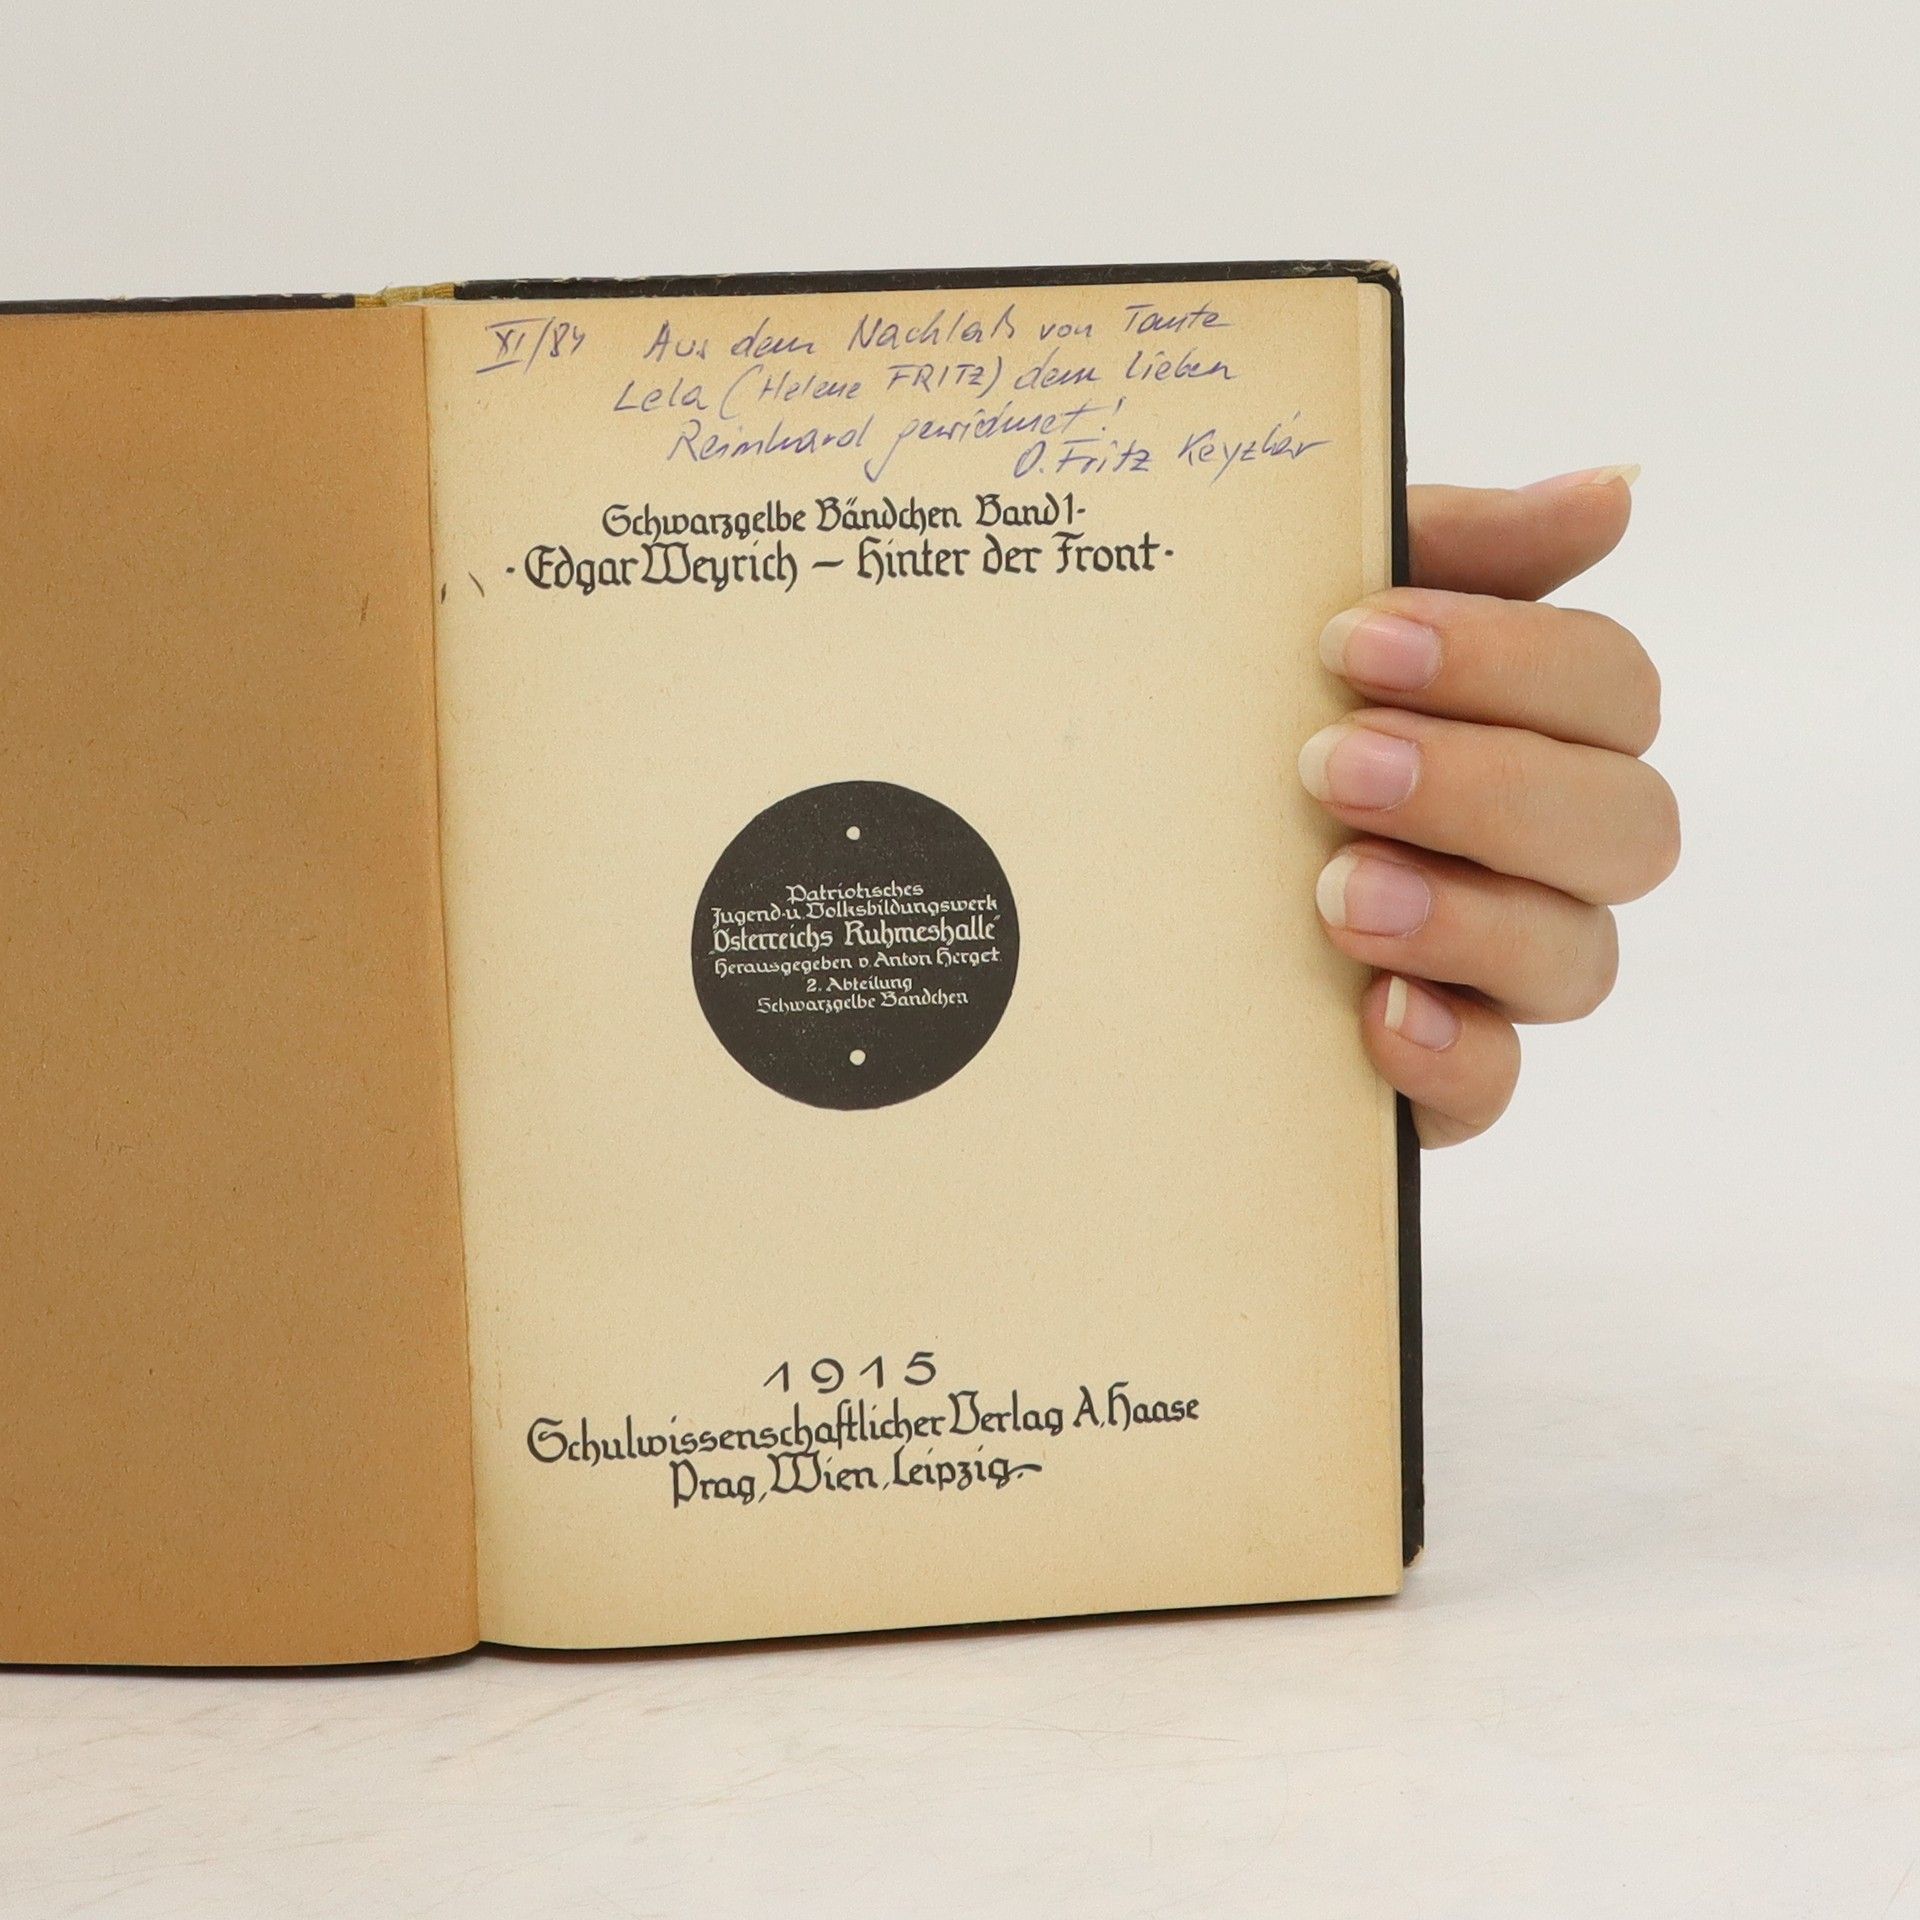 XI/84 Aus dem Nachlaß von Tante
Lela (Helene FRITZ) dem lieben
Reinhard gewidmet!
O. Fritz
Schwarzgelbe Bändchen Band 1-
·Edgar Weyrich – Hinter der Front·
Patriotisches
Jugend-u. Volksbildungswerk
„Österreichs Ruhmeshalle“
Herausgegeben v. Anton Herget
2. Abteilung
Schwarzgelbe Bändchen
1915
Schulwissenschaftlicher Verlag A. Haase
Prag, Wien, Leipzig.–